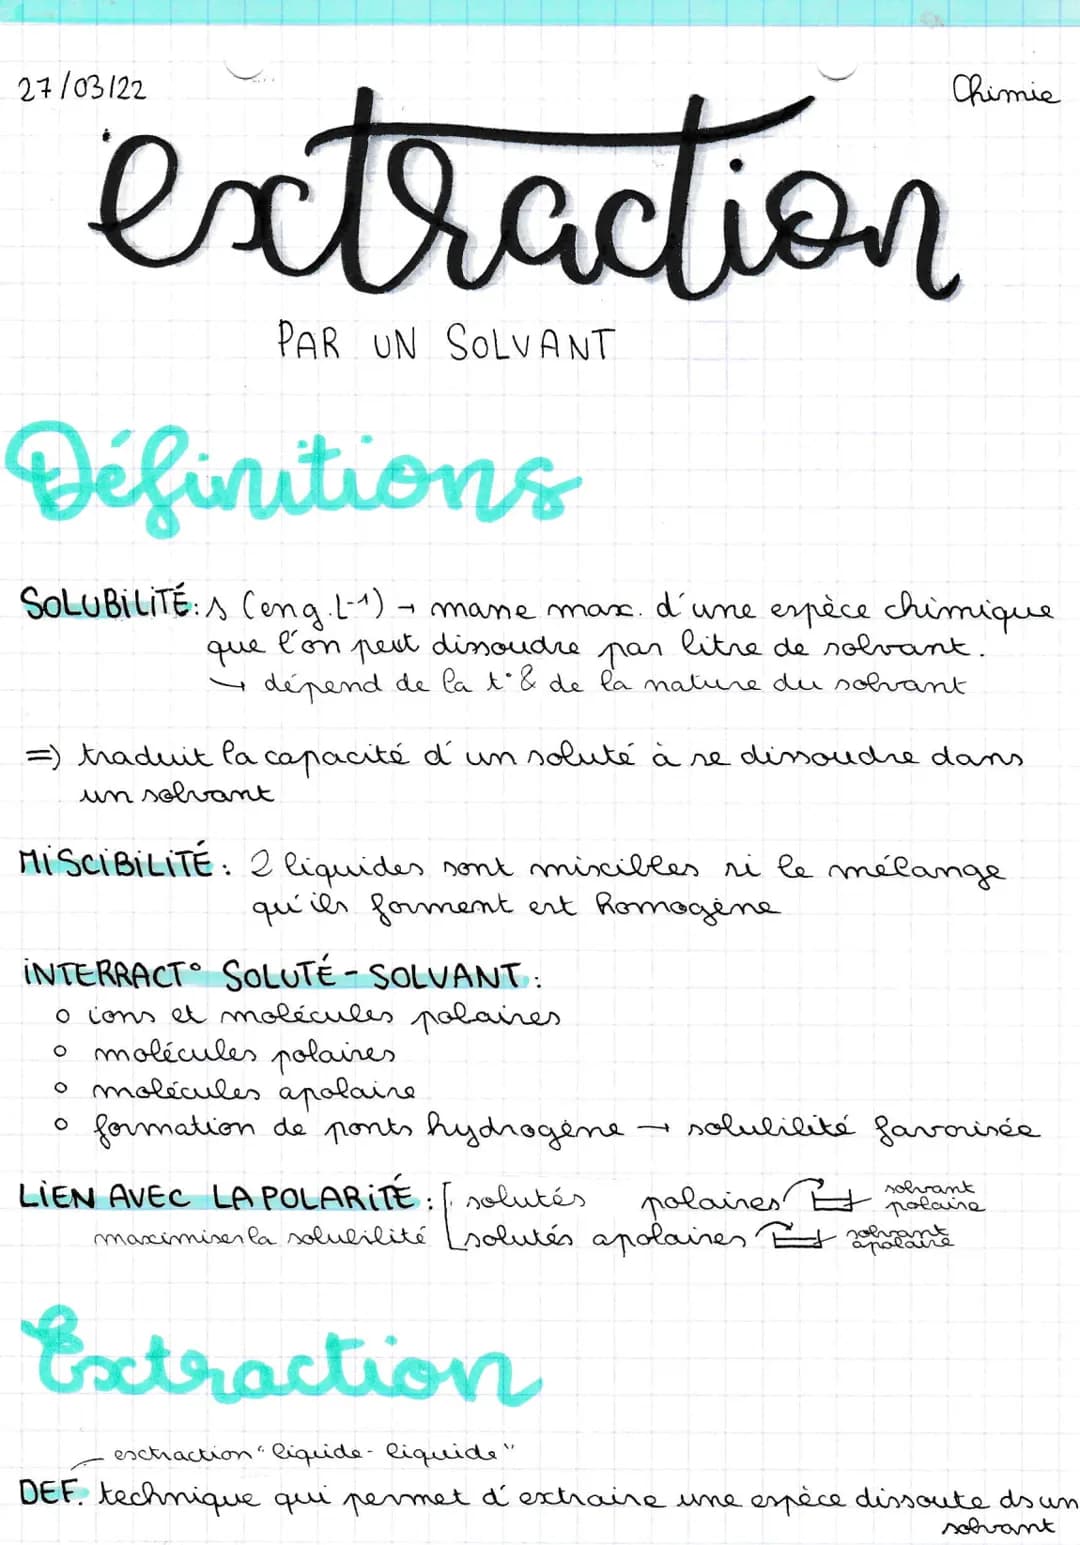 27/03/22 Chimie
extraction
PAR UN SOLVANT
Définitions
SOLUBILITÉ: s (en g.L-1) → masse max. d'une espèce chimique
que l'on peut dissoudre par litre de solvant.
↳ dépend de la t° & de la nature du solvant
=> traduit la capacité d'un soluté à se dissoudre dans
un solvant
MISCIBILITÉ: 2 liquides sont miscibles si le mélange
qu'ils forment est homogène
INTERRACT° SOLUTÉ-SOLVANT:
o ions et molécules polaires
o molécules polaires
o molécules apolaire
o formation de ponts hydrogène → solubilité favorisée
LIEN AVEC LA POLARITÉ: solutés polaires solvant polaire
maximiser la solubilité solutés apolaires solvant apolaire
Extraction
extraction "liquide-liquide"
DEF. technique qui permet d'extraire une espèce dissoute ds un
solvant